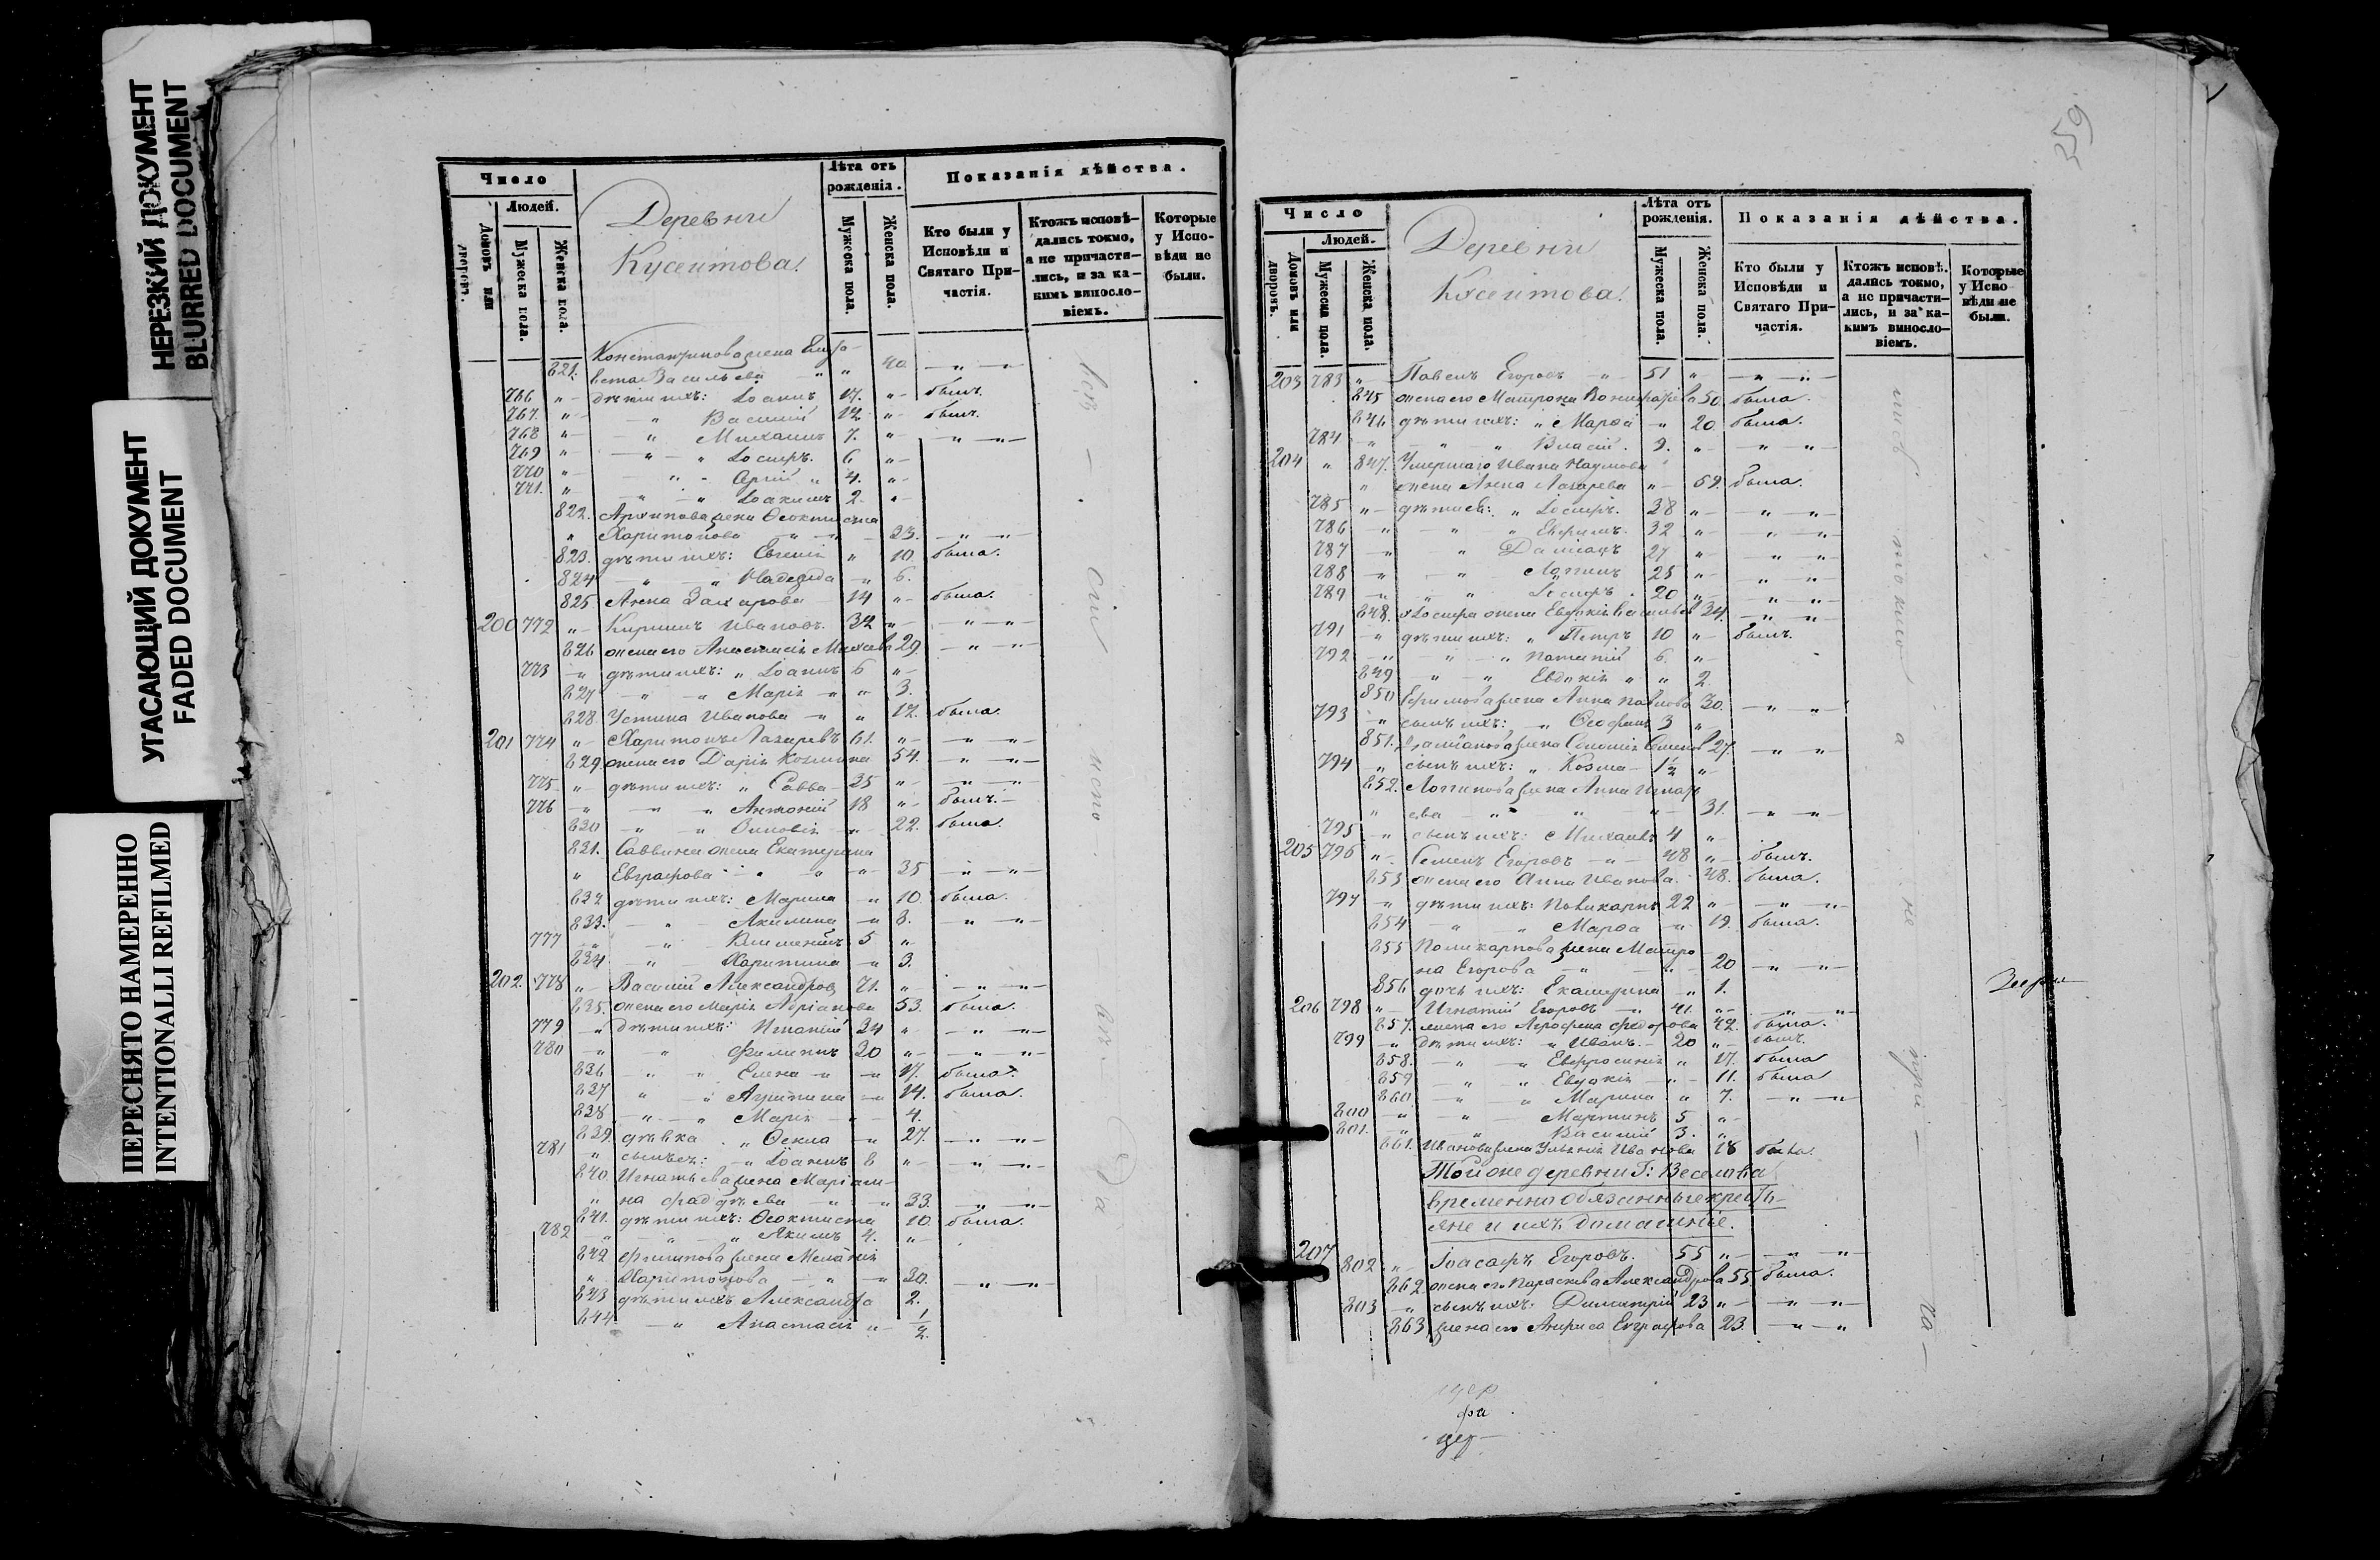 НЕРЕЗКИЙ ДОКУМЕНТ
BLURRED DOCUMENT
УГАСАЮЩИЙ ДОКУМЕНТ
FADED DOCUMENT
ПЕРЕСНЯТО НАМЕРЕННО
INTENTIONALLI REFILMED
Число
Людей.
Домовъ или дворовъ.
Мужеска пола.
Женска пола.
Деревни
Кусеитова.
Лѣта отъ рожденія.
Мужеска пола.
Женска пола.
Показанія дѣйства.
Кто были у Исповѣди и Святаго При-частія.
Ктожъ исповѣ-дались токмо, а не причасти-лись, и за ка-кимъ винослo-віемъ.
Которые у Испо-вѣди не были.
Константинова жена Елиза-
821. вета Васильева " 40. " "
766 " дѣти ихъ: Іоаннъ 17. " былъ.
767. " " Василій 12 " былъ.
768 " " Михаилъ 7. " " "
769 " " Іосифъ. 6 "
770 " " 4. "
771. " " Іоакимъ 2. "
822. Архипова жена Ѳеоктиста
" Харитонова " 23. " "
823. дѣти ихъ: Евгенія " 10. была.
824 " " Надежда " 6.
825 Анна Захарова 14 " была.
200 772 " Кириллъ Ивановъ. 32 " " "
826 жена его Анастасія 29. " "
773 " дѣти ихъ: " Іоаннъ 6 "
827 " " Марія " " 3.
828 Устина Иванова " " 12. была.
201 774 " Харитонъ Лазаревъ 61. " " "
829 жена его Дарія Козмина 54. " "
775 " дѣти ихъ: " Савва 35 " " "
776 " " " Антоній 18 " былъ.
830 " " Зиновія " 22. была.
831. Саввина жена Екатерина
" Евграфова " " " 35 " "
832 дѣти ихъ: Марина " 10. была.
833. " Акилина " 8. " "
777 " " Климентъ 5 "
834 " Харитина " 3.
202. 778 " Василій Александровъ 71. " " "
835. жена его Марія Адріанова 53. была.
779 " дѣти ихъ: Игнатій 34 " " "
780 " " Филиппъ 30 " " "
836 " " Елена " " 17. была.
837 " " " 14. была.
838 " " Марія " 4.
839. дѣвка " Ѳекла " 27. " "
781 " сынъ ея: " Іоаннъ 8 " " "
840. Игнатьева жена Маріам-
" на Фаддѣева " " 33. " "
841. дѣти ихъ: Ѳеоктиста 10. была.
782 " " " Акимъ 4. "
842 Филиппова жена Меланія
" Харитонова " " 30. " "
843 дѣти ихъ Александра 2.
844. " Анастасія " 1/2.
259
Число
Людей.
Домовъ или дворовъ.
Мужеска пола.
Женска пола.
Деревни
Кусеитова.
Лѣта отъ рожденія.
Мужеска пола.
Женска пола.
Показанія дѣйства.
Кто были у Исповѣди и Святаго При-частія.
Ктожъ исповѣ-дались токмо, а не причасти-лись, и за ка-кимъ винослo-віемъ.
Которые у Испо-вѣди не были.
203 783 " Павелъ Егоровъ " 51 " " "
845 жена его Матрона 50. была.
846 дѣти ихъ: " Марѳа " 20. была.
784 " " " Власій. 9. " " "
204 " 847. Умершаго Ивана Наумова
" жена Анна Лазарева " 59. была.
785 " дѣти ея: " Іосифъ. 38 " " "
786 " " " Ефимъ. 32 " " "
787 " " Даміанъ 27 " " "
788 " " Логинъ 25 " " "
789 " " " Іосифъ. 20 " " "
848. Іосифа жена Евдокія 34. " "
791 " дѣти ихъ: " Петръ 10 " былъ.
792 " " " 6. "
849 " " Евдокія " " 2.
850 Ефимова жена Анна Павлова 30. " "
793 " сынъ ихъ: " Ѳеофанъ 3 "
851. Даміанова жена Соломія 27. " "
794 " сынъ ихъ: " Козма 1½ "
852. Логинова жена Анна Игнать
" ева " " " 31. " "
795 " сынъ ихъ: Михаилъ 4 "
205 796 " Семенъ Егоровъ " 48 " былъ.
853 жена его Анна Иванова. 48. была.
797 " дѣти ихъ: Поликарпъ 22 " " "
854 " " Марѳа " 19. была.
855 Поликарпова жена Матро
на Егорова " " 20 " "
856 дочь ихъ: Екатерина " 1.
206 798 " Игнатій Егоровъ " 41. " " "
857. жена его Агрофена Федорова 42. была.
799 " дѣти ихъ: " Иванъ. 20 " былъ.
858. " " Евфросинія " 17. была
859 " " Евдокія " 11. была
860 " " Марина " 7. " "
800 " " Мартинъ 5 "
801. " " Василій 3. "
861. Иванова жена Иванова 18 была.
Той же деревни Г: Веселова
временно обязанные кресть-
яне и ихъ домашніе.
207 802 " Іоасафъ Егоровъ. 55 " " "
862 жена его Параскева Александрова 55 была.
803 " сынъ ихъ: Димитрій 23 " " "
863 жена его Евграфова 23. " "